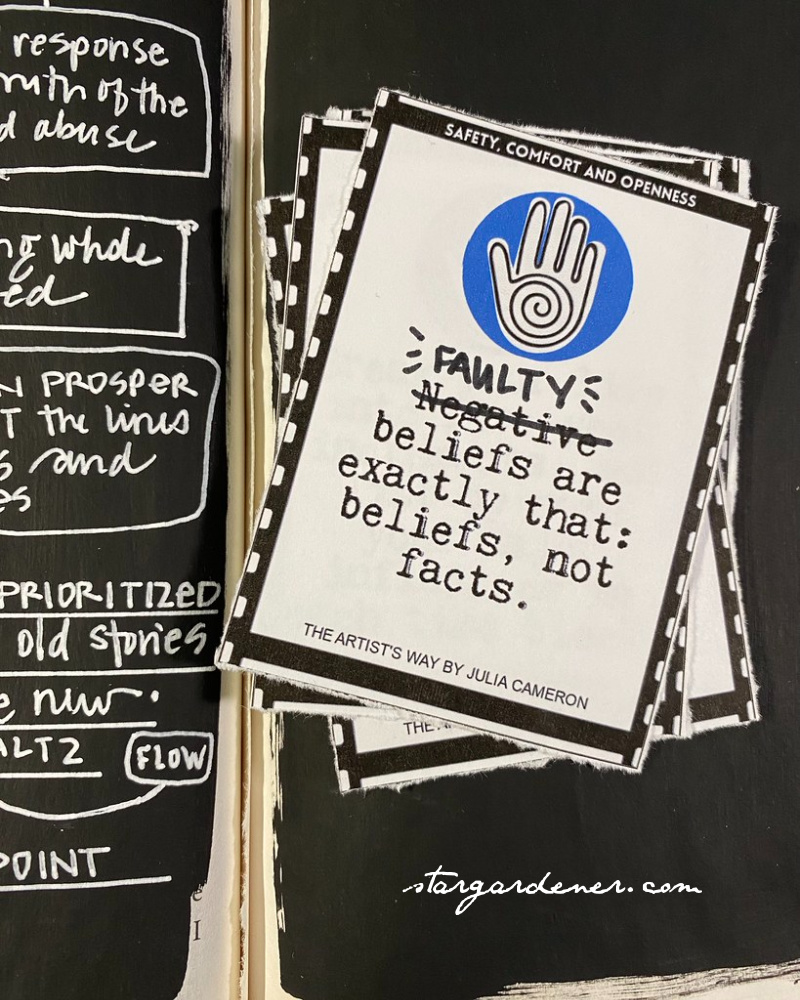 response
truth of the
d abuse
ng whole
ed
N PROSPER
T the lines
s and
es
PRIORITIZED
old stories
e new.
ALT2
FLOW
POINT
e
I
SAFETY, COMFORT AND OPENNESS
FAULTY
Negative
beliefs are
exactly that:
beliefs, not
facts.
THE ARTIST'S WAY BY JULIA CAMERON
THE A
stargardener.com